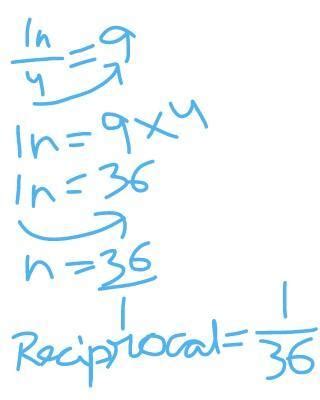 1n/4 = 9
1n = 9 × 4
1n = 36
n = 36/1
Reciprocal = 1/36